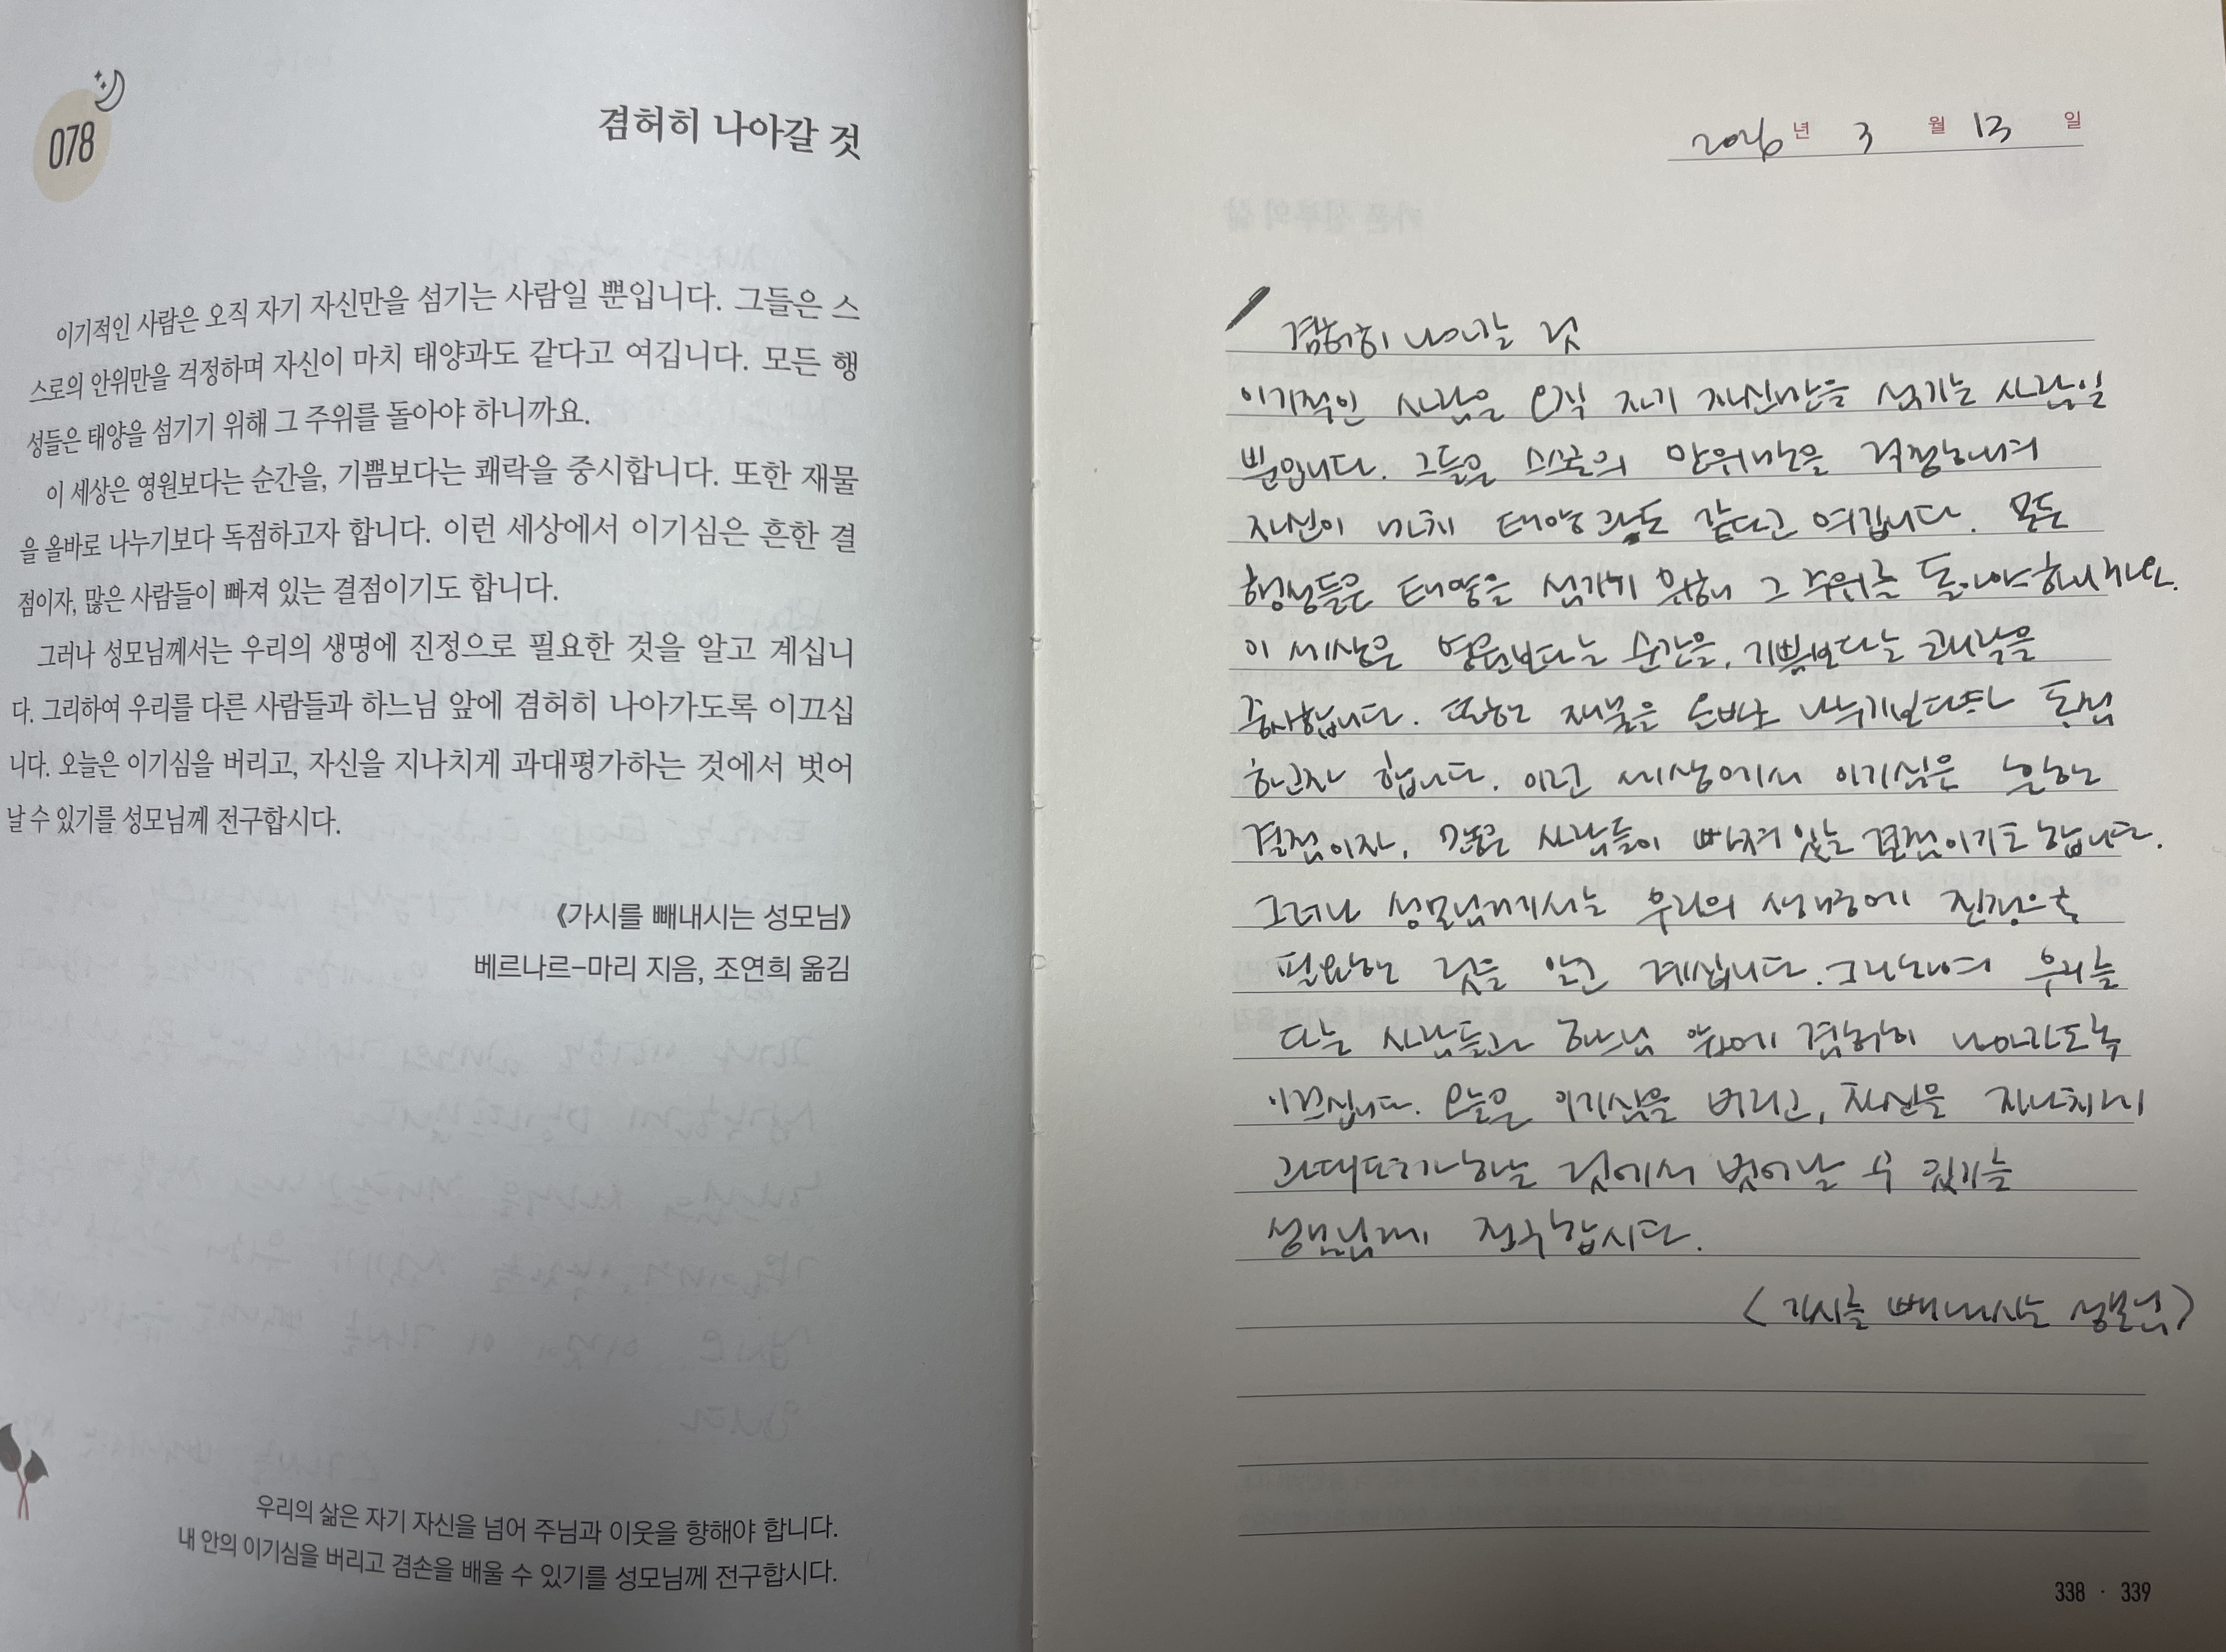 078
겸허히 나아갈 것
이기적인 사람은 오직 자기 자신만을 섬기는 사람일 뿐입니다. 그들은 스
스로의 안위만을 걱정하며 자신이 마치 태양과도 같다고 여깁니다. 모든 행
성들은 태양을 섬기기 위해 그 주위를 돌아야 하니까요.
이 세상은 영원보다는 순간을, 기쁨보다는 쾌락을 중시합니다. 또한 재물
을 올바로 나누기보다 독점하고자 합니다. 이런 세상에서 이기심은 흔한 결
점이자, 많은 사람들이 빠져 있는 결점이기도 합니다.
그러나 성모님께서는 우리의 생명에 진정으로 필요한 것을 알고 계십니
다. 그리하여 우리를 다른 사람들과 하느님 앞에 겸허히 나아가도록 이끄십
니다. 오늘은 이기심을 버리고, 자신을 지나치게 과대평가하는 것에서 벗어
날 수 있기를 성모님께 전구합시다.
《가시를 빼내시는 성모님》
베르나르-마리 지음, 조연희 옮김
우리의 삶은 자기 자신을 넘어 주님과 이웃을 향해야 합니다.
내 안의 이기심을 버리고 겸손을 배울 수 있기를 성모님께 전구합시다.
2026년 3월 13일
겸허히 나아갈 것
이기적인 사람은 오직 자기 자신만을 섬기는 사람일
뿐입니다. 그들은 스스로의 안위만을 걱정하며
자신이 마치 태양과도 같다고 여깁니다. 모든
행성들은 태양을 섬기기 위해 그 주위를 돌아야 하니까요.
이 세상은 영원보다는 순간을, 기쁨보다는 쾌락을
중시합니다. 또한 재물을 올바로 나누기보다 독점
하고자 합니다. 이런 세상에서 이기심은 흔한
결점이자, 많은 사람들이 빠져 있는 결점이기도 합니다.
그러나 성모님께서는 우리의 생명에 진정으로
필요한 것을 알고 계십니다. 그리하여 우리를
다른 사람들과 하느님 앞에 겸허히 나아가도록
이끄십니다. 오늘은 이기심을 버리고, 자신을 지나치게
과대평가하는 것에서 벗어날 수 있기를
성모님께 전구합시다.
<가시를 빼내시는 성모님>
338 · 339